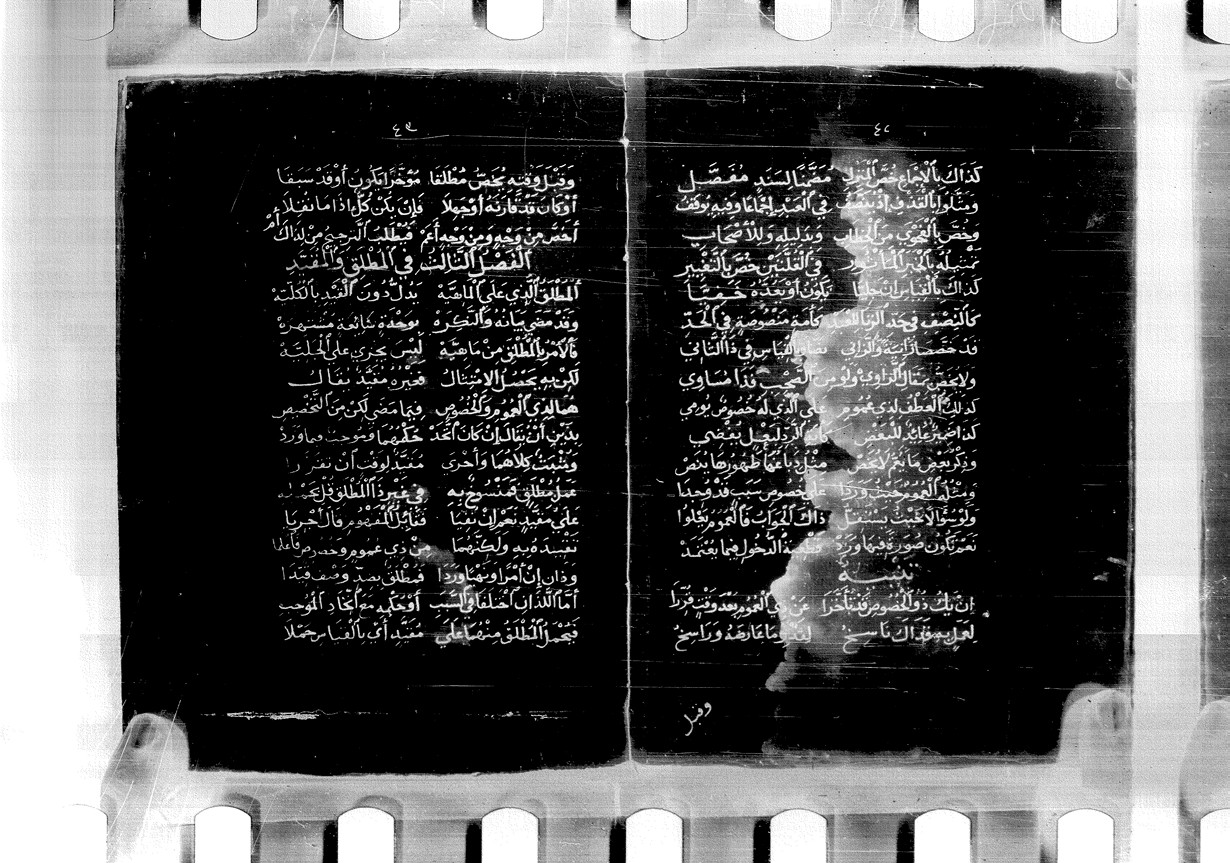 ٤٨
كذاك بالإجماع خص مضمنا لسند مفصل
ومثلوا بالقذف إذ ينصف في العبد إجماعا وفيه يوقف
وخص بالفحوى من الخطاب وبدليله وللأصحاب
تمثيله بالخبر المأثور في القلتين خص بالتغيير
كذاك بالقياس إن جليا يكون أو بعده خفيا
كالنصف في حد الزنا للعبد كأمة منصوصة في الحد
قد خصصا زانية والزاني بالقياس في ذا الثاني
ولا يخص بمقال الراوي ولو من فذا مساوي
كذلك العطف لذي عموم على الذي له خصوص يومي
كذا ضمير عائد للبعض
وذكر بعض ما يعم لا يخص مثل دباغها طهورها بنص
ومثله العموم حيث وردا على خصوص سبب قد وجدا
ولو سؤالا حيث يستقل ذاك الجواب فالعموم
نعم تكون صورة فيها ورد الدخول فيما يعتمد
تنبيه
إن يك ذو الخصوص قد تأخرا عن ذي العموم بعد وقت قررا
لعمل به فذاك ناسخ وما عارضه وراسخ
وقيل
٤٩
وقيل وقته يخص مطلقا مؤخرا يكون أو قد سبقا
أو كان قد قارنه أو جهلا فإن يكن كل إذا ما نقلا
أخص من وجه ومن وجه أعم فيطلب الترجيح من ذاك
الفصل الثالث في المطلق والمقيد
المطلق الذي على الماهية يدل دون القيد بالكلية
وقد مضى بيانه والنكره بوحدة شائعة مشتهره
فالأمر بالمطلق من ماهية ليس بجزي على الجلية
لكن به يحصل الامتثال فغيره مقيد يقال
هما لدى العموم والخصوص فيما مضى لكن من التخصيص
بذين أن يقال إن كان اتحد حكمهما وموجب وما ورد
ومثبت كلاهما وأحرى مقيد لوقت أن تقررا
عمل مطلق فمنسوخ به في غير ذا المطلق
على مقيد نعم إن نفيا فقائل المفهوم قال أجريا
تقييده به ولكنهما من ذي عموم وخصوص فاعلما
وذان إن أمرا ونهيا وردا فمطلق بضد وصف قيدا
أما اللذان اختلفا في السبب أو حكمه مع اتحاد الموجب
فيحمل المطلق منهما على مقيد أي بالقياس حملا